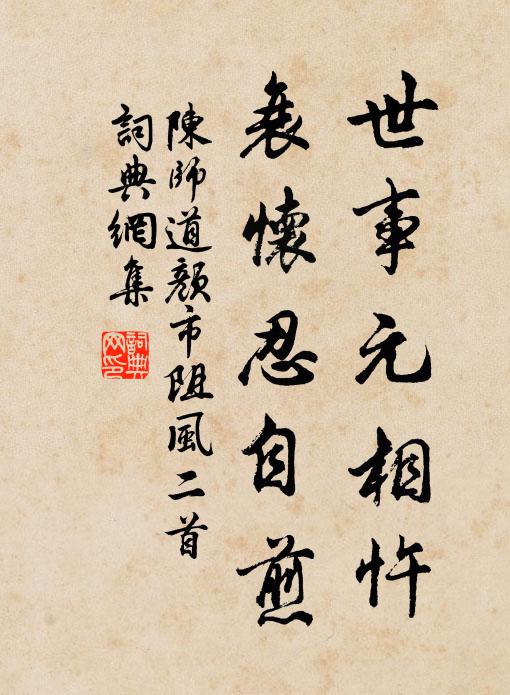 世事元相忤
衰懷忍自煎
陳師道顏市阻風二首
詞典網集
詞典网印